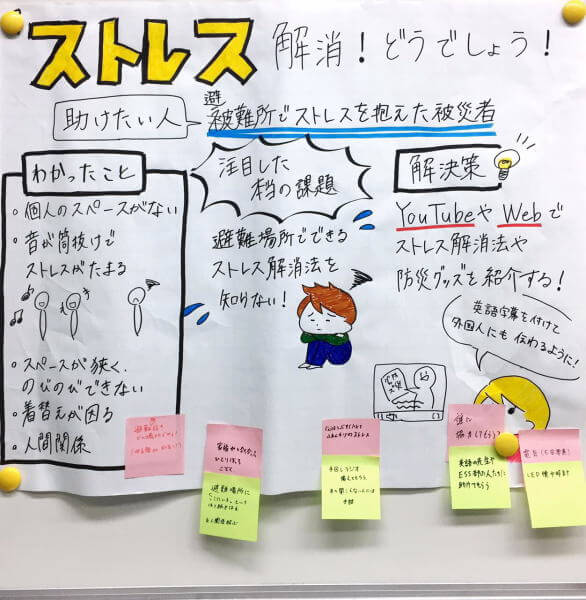 ストレス 解消！どうでしょう！
助けたい人
避
被難所でストレスを抱えた被災者
わかったこと
・個人のスペースがない
・音が筒抜けで
ストレスがたまる
・スペースが狭く、
のびのびできない
・着替えが困る
・人間関係
注目した
本当の課題
避難場所でできる
ストレス解消法を
知らない！
解決策
YouTubeや Webで
ストレス解消法や
防災グッズを紹介する！
英語字幕を付けて
外国人にも 伝わるように！
避難場所に
手回しラジオ
備えてもらう
手話
誰に
協力してもらう？
英語の先生や
ESS部の人たちに
助けてもらう